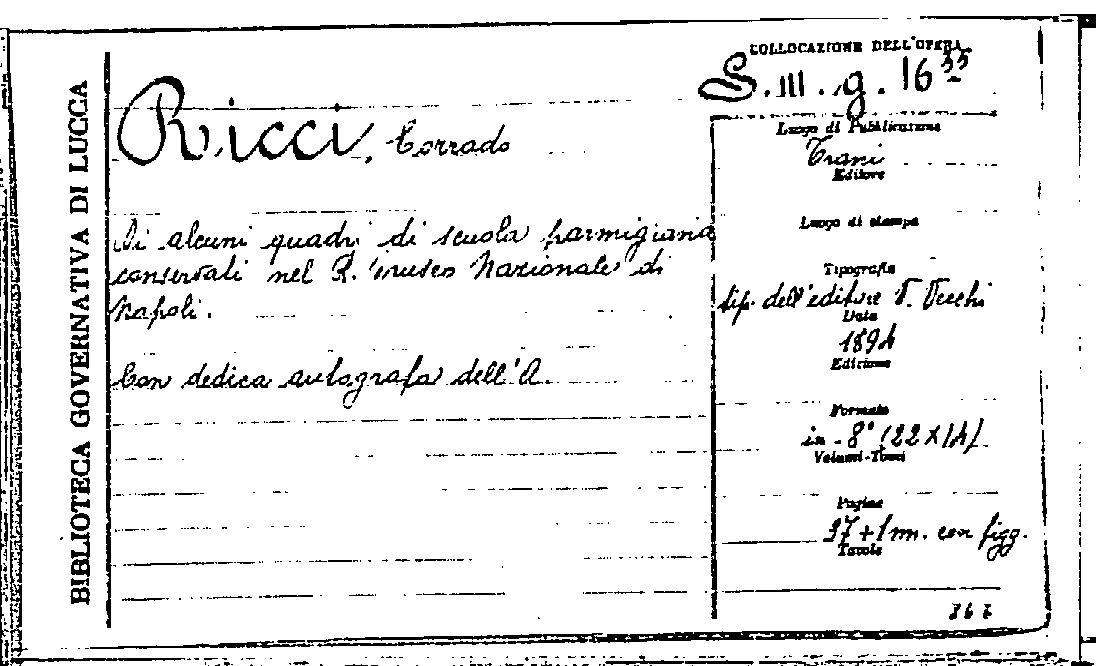 BIBLIOTECA GOVERNATIVA DI LUCCA
COLLOCAZIONE DELL'OPERA
S. III. g. 16 35
Ricci, Corrado
Luogo di Pubblicazione
Trani
Editore
Di alcuni quadri di scuola parmigiana
conservati nel R. museo Nazionale di
Napoli.
Con dedica autografa dell'A.
Luogo di stampa
Tipografia
tip. dell'editore V. Vecchi
Data
1894
Edizione
Formato
in-8° (22x14)
Volumi-Tomi
Pagine
37+1 nn. con figg.
Tavole